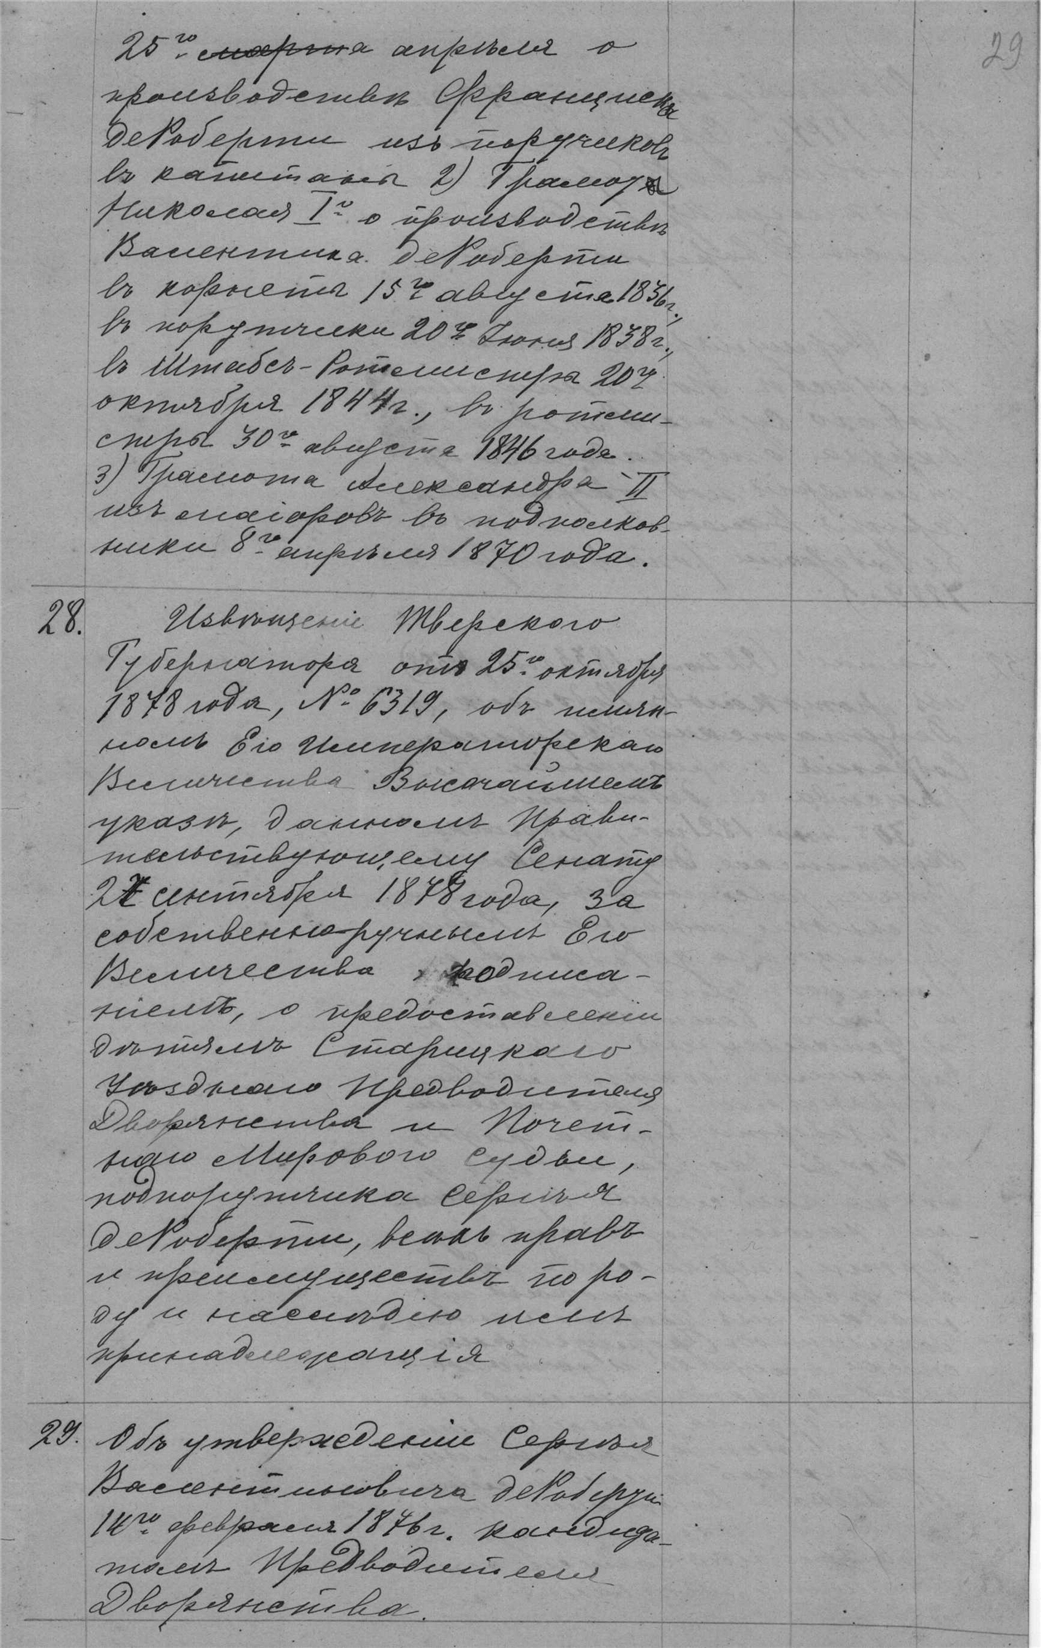 29
25го марта апрѣля о
производствѣ Франциска
деРоберти изъ поручиковъ
въ капитаны 2) Грамота
Николая Iго о производствѣ
Валентина деРоберти
въ корнеты 15го августа 1836 г.,
въ поручики 20го Іюня 1838 г.,
въ Штабсъ-Ротмистры 20го
октября 1844 г., въ ротми-
стры 30го августа 1846 года.
3) Грамота Александра II
изъ маіоровъ въ подполков-
ники 8го апрѣля 1870 года.
28. Извѣщеніе Тверского
Губернатора отъ 25го октября
1878 года, № 6319, объ имян-
номъ Его Императорскаго
Величества Высочайшемъ
указѣ, данномъ Прави-
тельствующему Сенату
27 сентября 1878 года, за
собственноручнымъ Его
Величества подписа-
ніемъ, о предоставленіи
дѣтямъ Старицкаго
Уѣзднаго Предводителя
Дворянства и Почет-
наго Мирового Судьи,
подпоручика Сергѣя
деРоберти, всѣхъ правъ
и преимуществъ по ро-
ду и наслѣдію имъ
принадлежащія
29. Объ утвержденіи Сергѣя
Валентиновича деРоберти
14го февраля 1876 г. кандида-
томъ Предводителя
Дворянства.